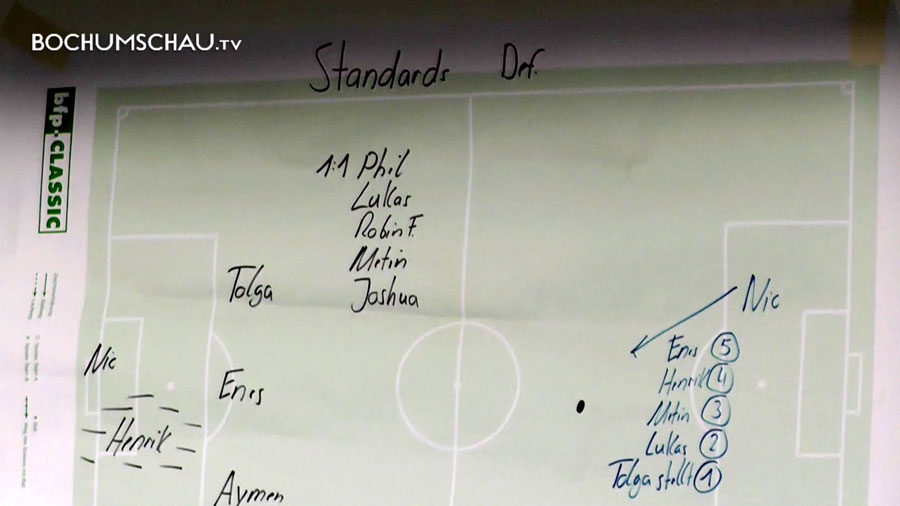 BOCHUMSCHAU.TV
Standards Def.
bfp.CLASSIC
1:1 Phil
Lukas
Robin F.
Metin
Joshua
Tolga
Nic
Enes
Henrik
Aymen
Nic
Enes 5
Henrik 4
Metin 3
Lukas 2
Tolga stellt 1